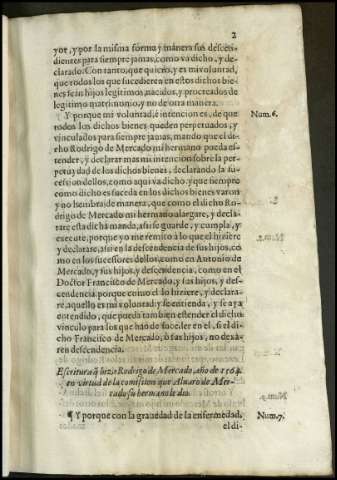 2
yor, y por la misma forma y manera sus descen-
dientes para siempre jamas, como va dicho, y de-
clarado. Con tanto, que quiero, y es mi voluntad,
que todos los que sucedieren en estos dichos bie-
nes sean hijos legitimos, nacidos, y procreados de
legitimo matrimonio, y no de otra manera.
¶ Y porque mi voluntad, è intencion es, de que
todos los dichos bienes queden perpetuados, y
vinculados para siempre jamas, mando que el di-
cho Rodrigo de Mercado mi hermano pueda es-
tender, y declarar mas mi intencion sobre la per-
petuydad de los dichos bienes, declarando la su-
cession dellos, como aqui va dicho. y que siempre
como dicho es suceda en los dichos bienes varon
y no hembra, de manera, que como el dicho Ro-
drigo de Mercado mi hermano alargare, y decla-
rare esta dicha mando, assi se guarde, y cumpla, y
execute, porque yo me remito a lo que el hiziere
y declarare, assi en la descendencia de sus hijos, co
mo en los sucessores dellos, como en Antonio de
Mercado, y sus hijos, y descendencia, como en el
Doctor Francisco de Mercado, y sus hijos, y des-
cendencia porque como el lo hiziere, y declara-
re, aquello es mi voluntad, y se entienda, y se aya
entendido, que pueda tambien estender el dicho
vinculo para los que han de suceder en el, si el di-
cho Francisco de Mercado, ò sus hijos, no dexa-
ren descendencia.
Escritura q̃ hizo Rodrigo de Mercado, año de 1564.
en virtud de la comission que Aluaro de Mer-
cado su hermano le dio.
¶ Y porque con la grauedad de la enfermedad,
el di-
Num.6.
Num.7.